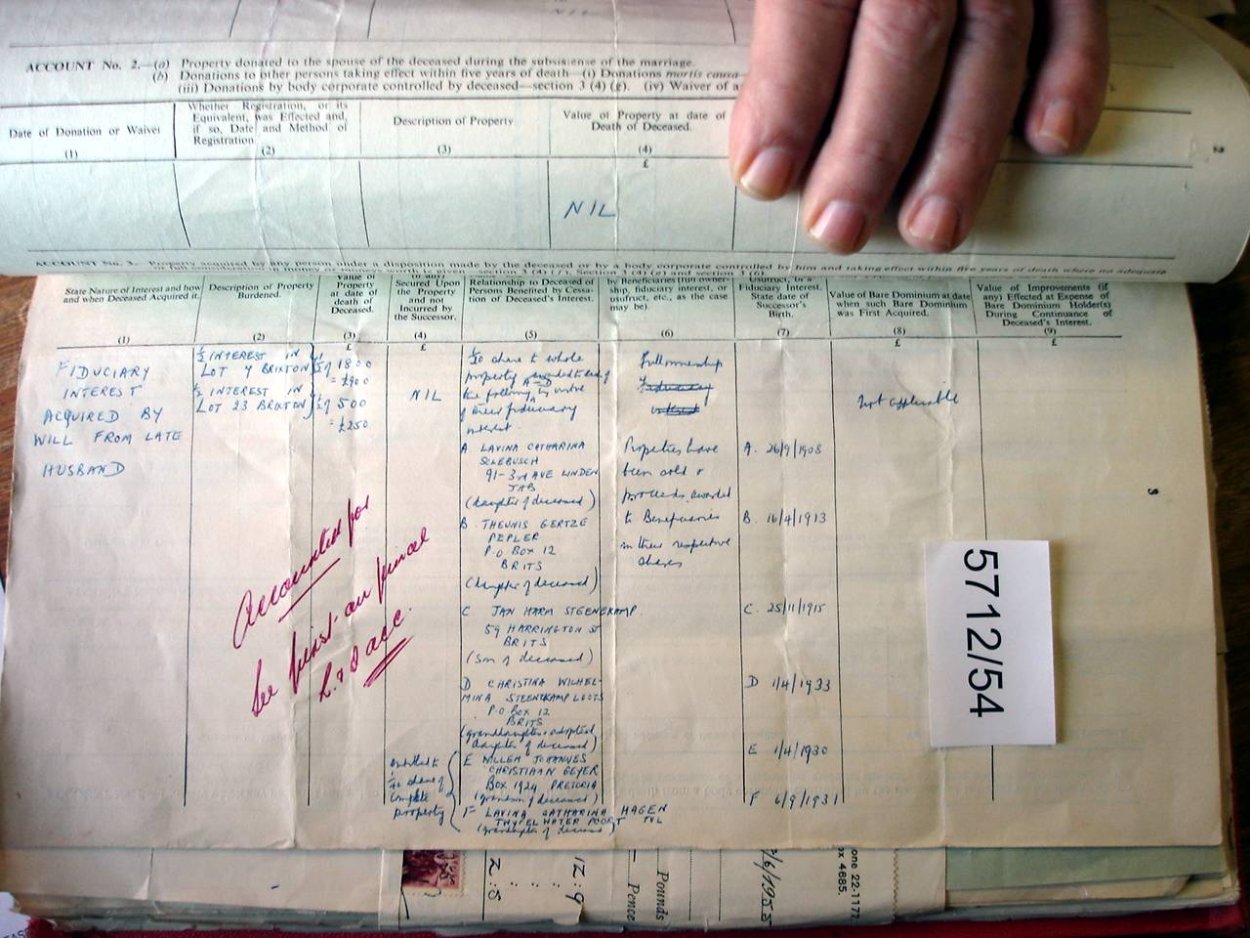 NIL
ACCOUNT No. 2.—(a) Property donated to the spouse of the deceased during the subsistence of the marriage.
(b) Donations to other persons taking effect within five years of death—(i) Donations mortis causa—
(iii) Donations by body corporate controlled by deceased—section 3 (4) (g). (iv) Waiver of a
Date of Donation or Waiver
(1)
Whether Registration, or its
Equivalent, was Effected and,
if so, Date and Method of
Registration.
(2)
Description of Property
(3)
Value of Property at date of
Death of Deceased.
(4)
£
2
NIL
ACCOUNT No. 3. Property acquired by any person under a disposition made by the deceased or by a body corporate controlled by him and taking effect within five years of death where no adequate
State Nature of Interest and how
and when Deceased Acquired it.
(1)
Description of Property
Burdened.
(2)
Value of
Property
at date of
death of
Deceased.
(3)
£
(if any)
Secured Upon
the Property
and not
Incurred by
the Successor.
(4)
£
Relationship to Deceased of
Persons Benefited by Cessa-
tion of Deceased's Interest.
(5)
by Beneficiaries (full owner-
ship, fiduciary interest, or
usufruct, etc., as the case
may be).
(6)
Usufruct, or a
Fiduciary Interest.
State date of
Successor's
Birth.
(7)
Value of Bare Dominium at date
when such Bare Dominium
was First Acquired.
(8)
£
Value of Improvements (if
any) Effected at Expense of
Bare Dominium Holder(s)
During Continuance of
Deceased's Interest.
(9)
£
FIDUCIARY
INTEREST
ACQUIRED BY
WILL FROM LATE
HUSBAND
½ INTEREST IN
LOT 7 BRIXTON
½ INTEREST IN
LOT 23 BRIXTON
½ of 1800
= £900
½ of 500
= £250
NIL
1/10 share to whole
property awarded to each of
the following A-D by virtue
of their fiduciary
interest.
A LAVINA CATHARINA
SCLEBUSCH
91-3rd AVE LINDEN
JHB
(daughter of deceased)
B. THEUNIS GERTZE
PEPLER
P.O BOX 12
BRITS
(daughter of deceased)
C JAN HARM STEENEKAMP
59 HARRINGTON ST
BRITS
(Son of deceased)
D CHRISTINA WILHEL-
MINA STEENEKAMP LOOTS
P.O. BOX 12
BRITS
(granddaughter + adopted
daughter of deceased)
E WILLEM JOHANNES
CHRISTIAAN GEYER
BOX 1924 PRETORIA
(grandson of deceased)
F LAVINA CATHARINA HAGEN
POORT TVL
(granddaughter of deceased)
entitled to
share of
complete
property
Full ownership
Fiduciary
interest
Properties have
been sold &
proceeds awarded
to Beneficiaries
in their respective
shares
A. 26/9/1908
B. 16/4/1913
C. 25/11/1915
D 1/4/1933
E 1/4/1930
F 6/9/1931
Not applicable
Accounted for
See first and final
L. & D acc.
3
5712/54
12:9
2:5
Pounds
Pence
/6/1955
one 22-1177
ox 4685.